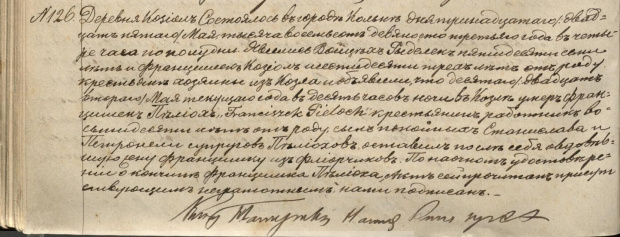 №126
Деревня Козіолъ. Состоялось въ городѣ Кольнѣ дня тринадцатаго/двад-
цать пятаго/ Мая тысяча восемьсотъ девяносто третьяго года въ четы-
ре часа по полудни. Явились Войцѣхъ пятидесяти семи
лѣтъ и Францишекъ Козіолъ шестидесяти трехъ лѣтъ отъ роду
крестьяне хозяины изъ Козла и объявили, что десятаго/двадцать
втораго/ Мая текущаго года въ десять часовъ ночи въ Козлѣ умеръ Фран-
цишекъ Пѣліохъ „Franciszek Pieloch" крестьянинъ работникъ во-
сьмидесяти лѣтъ отъ роду, сынъ покойныхъ Станислава и
Петронели супруговъ Пѣліоховъ, оставивъ послѣ себя овдовѣв-
шую жену Францишку изъ Фіорчиковъ. По настоящемъ удостовѣре-
ніи о кончинѣ Францишка Пѣліоха, Актъ сей прочитанъ присут-
ствующимъ неграмотнымъ нами подписанъ.